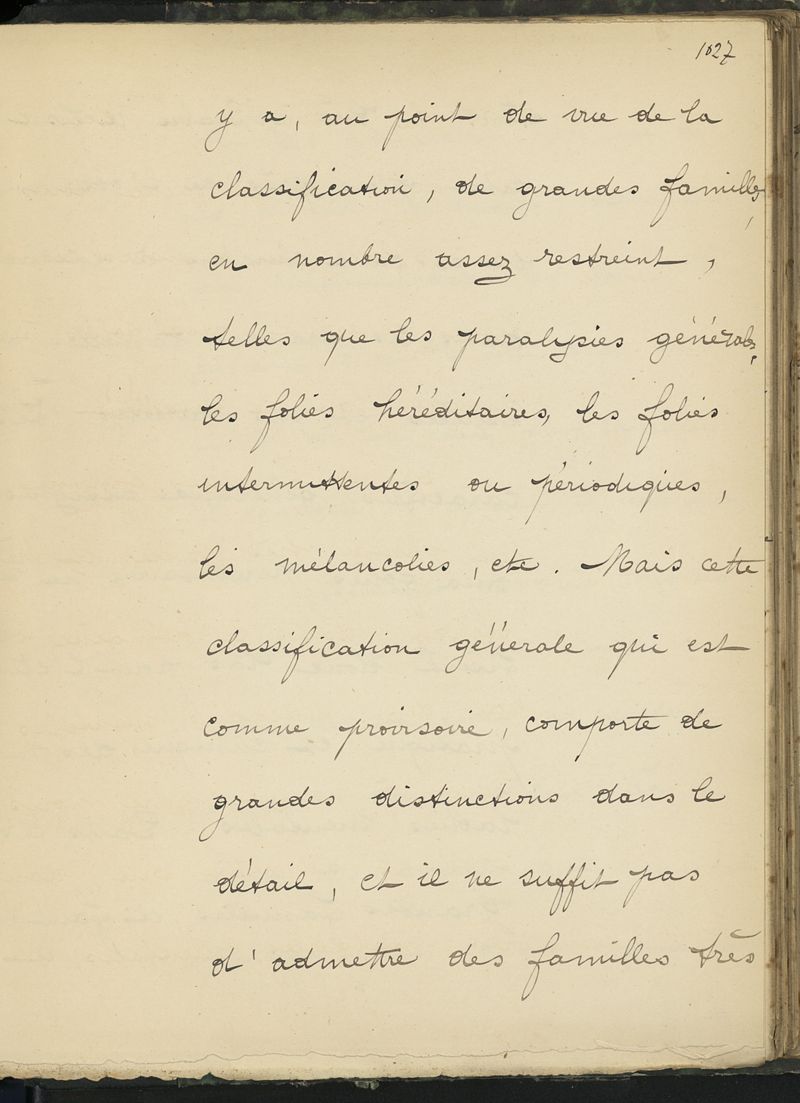 1027
y a, au point de vue de la
classification, de grandes familles,
en nombre assez restreint,
telles que les paralysies générales,
les folies héréditaires, les folies
intermittentes ou périodiques,
les mélancolies, etc. Mais cette
classification générale qui est
comme provisoire, comporte de
grandes distinctions dans le
détail, et il ne suffit pas
d'admettre des familles très